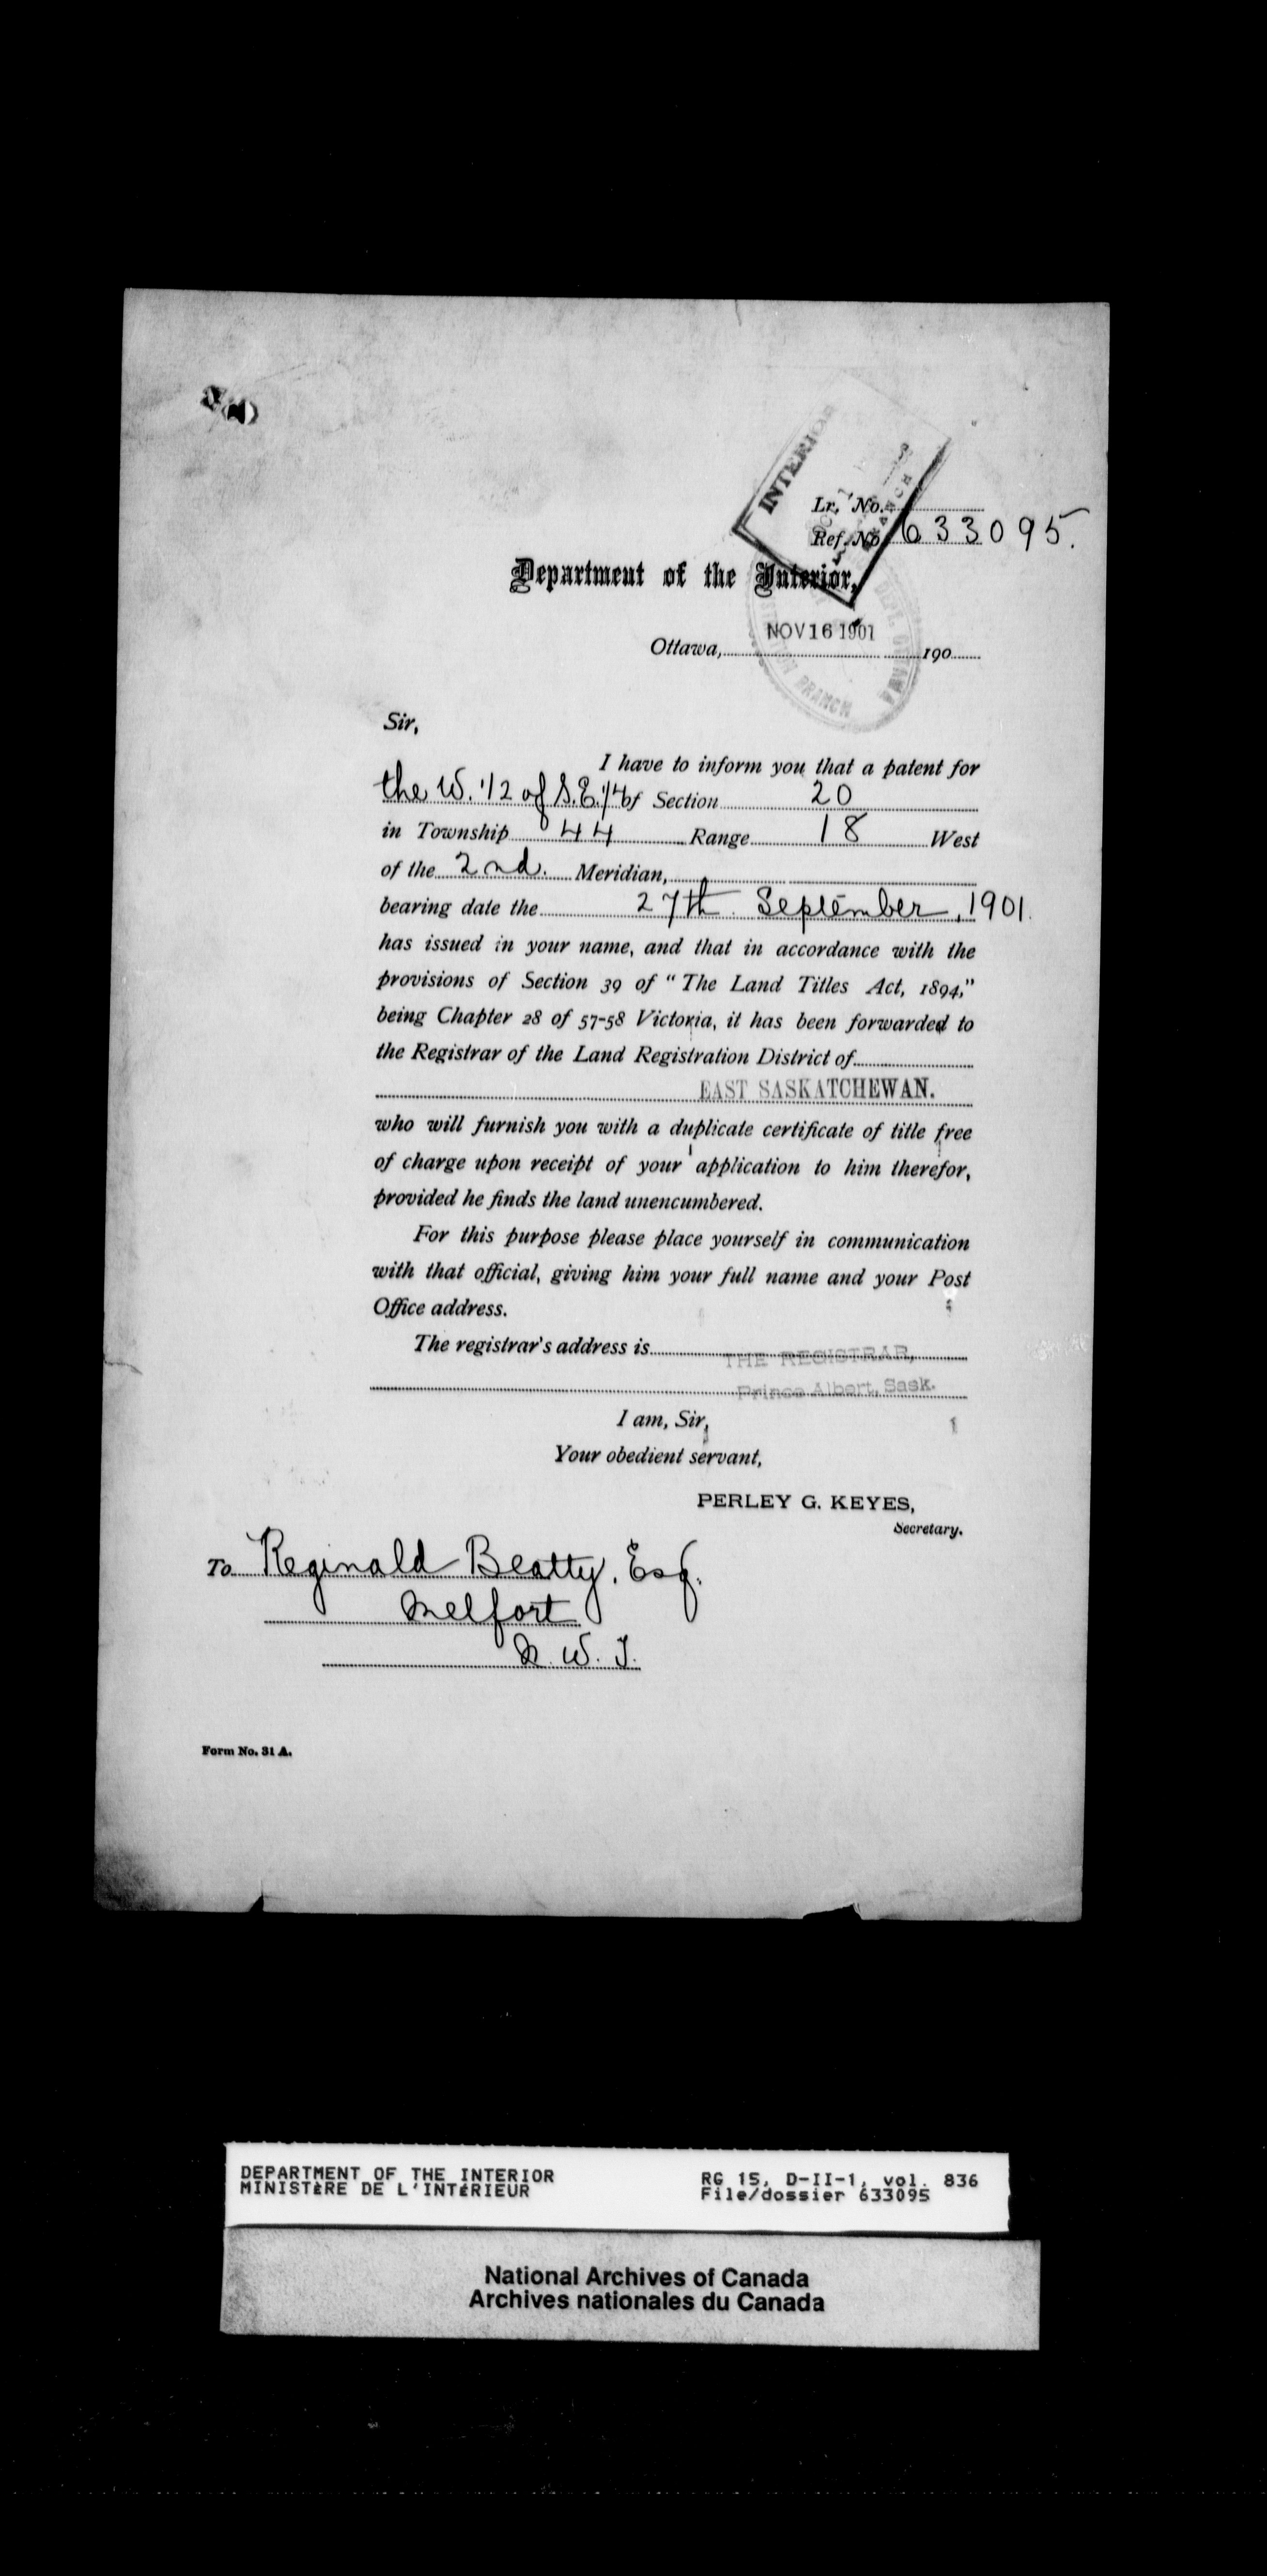 INTERIOR
Lr. No.
Ref. No. 633095.
Department of the Interior,
NOV 16 1901
Ottawa, 190
BRANCH
Sir,
I have to inform you that a patent for
the W. 1/2 of S.E. 1/4 of Section 20
in Township 44 Range 18 West
of the 2nd. Meridian,
bearing date the 27th September, 1901.
has issued in your name, and that in accordance with the
provisions of Section 39 of "The Land Titles Act, 1894,"
being Chapter 28 of 57-58 Victoria, it has been forwarded to
the Registrar of the Land Registration District of
EAST SASKATCHEWAN.
who will furnish you with a duplicate certificate of title free
of charge upon receipt of your application to him therefor,
provided he finds the land unencumbered.
For this purpose please place yourself in communication
with that official, giving him your full name and your Post
Office address.
The registrar's address is THE REGISTRAR,
Prince Albert, Sask.
I am, Sir,
Your obedient servant,
PERLEY G. KEYES,
Secretary.
To Reginald Beatty, Esq.
Melfort
N. W. T.
Form No. 31 A.
DEPARTMENT OF THE INTERIOR RG 15, D-II-1, vol. 836
MINISTÈRE DE L'INTÉRIEUR File/dossier 633095
National Archives of Canada
Archives nationales du Canada